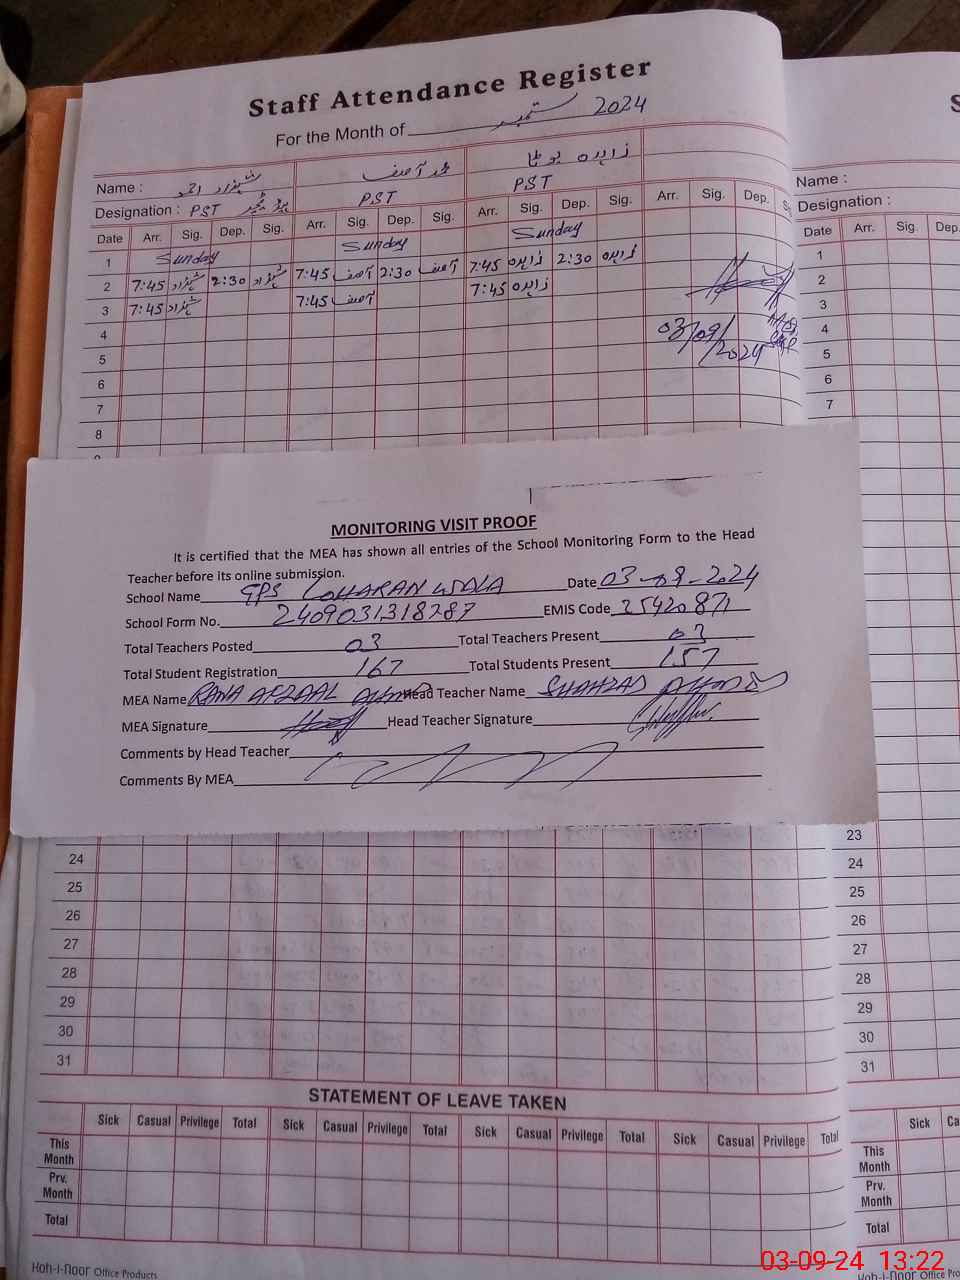 Staff Attendance Register
For the Month of ستمبر 2024
Name : شہزاد احمد محمد آصف زاہدہ بوٹا
Designation : PST ہیڈ ٹیچر PST PST
Date Arr. Sig. Dep. Sig. Arr. Sig. Dep. Sig. Arr. Sig. Dep. Sig. Arr. Sig. Dep.
1 Sunday Sunday Sunday
2 7:45 شہزاد 2:30 شہزاد 7:45 آصف 2:30 آصف 7:45 زاہدہ 2:30 زاہدہ
3 7:45 شہزاد 7:45 آصف 7:45 زاہدہ
4 03/09/2024
5
6
7
8
Name :
Designation :
Date Arr. Sig. Dep.
1
2
3
4
5
6
7
MONITORING VISIT PROOF
It is certified that the MEA has shown all entries of the School Monitoring Form to the Head
Teacher before its online submission.
School Name GPS LOHARAN WALA Date 03-09-2024
School Form No. 2409031318287 EMIS Code 35420871
Total Teachers Posted 03 Total Teachers Present 03
Total Student Registration 167 Total Students Present 157
MEA Name RANA AFZAAL AHMAD Head Teacher Name SHAHZAD AHMAD
MEA Signature Head Teacher Signature
Comments by Head Teacher
Comments By MEA
24
25
26
27
28
29
30
31
23
24
25
26
27
28
29
30
31
STATEMENT OF LEAVE TAKEN
Sick Casual Privilege Total Sick Casual Privilege Total Sick Casual Privilege Total Sick Casual Privilege Total
This Month
Prv. Month
Total
Sick Ca
This Month
Prv. Month
Total
Koh-i-noor Office Products
Koh-i-noor Office Pro
03-09-24 13:22